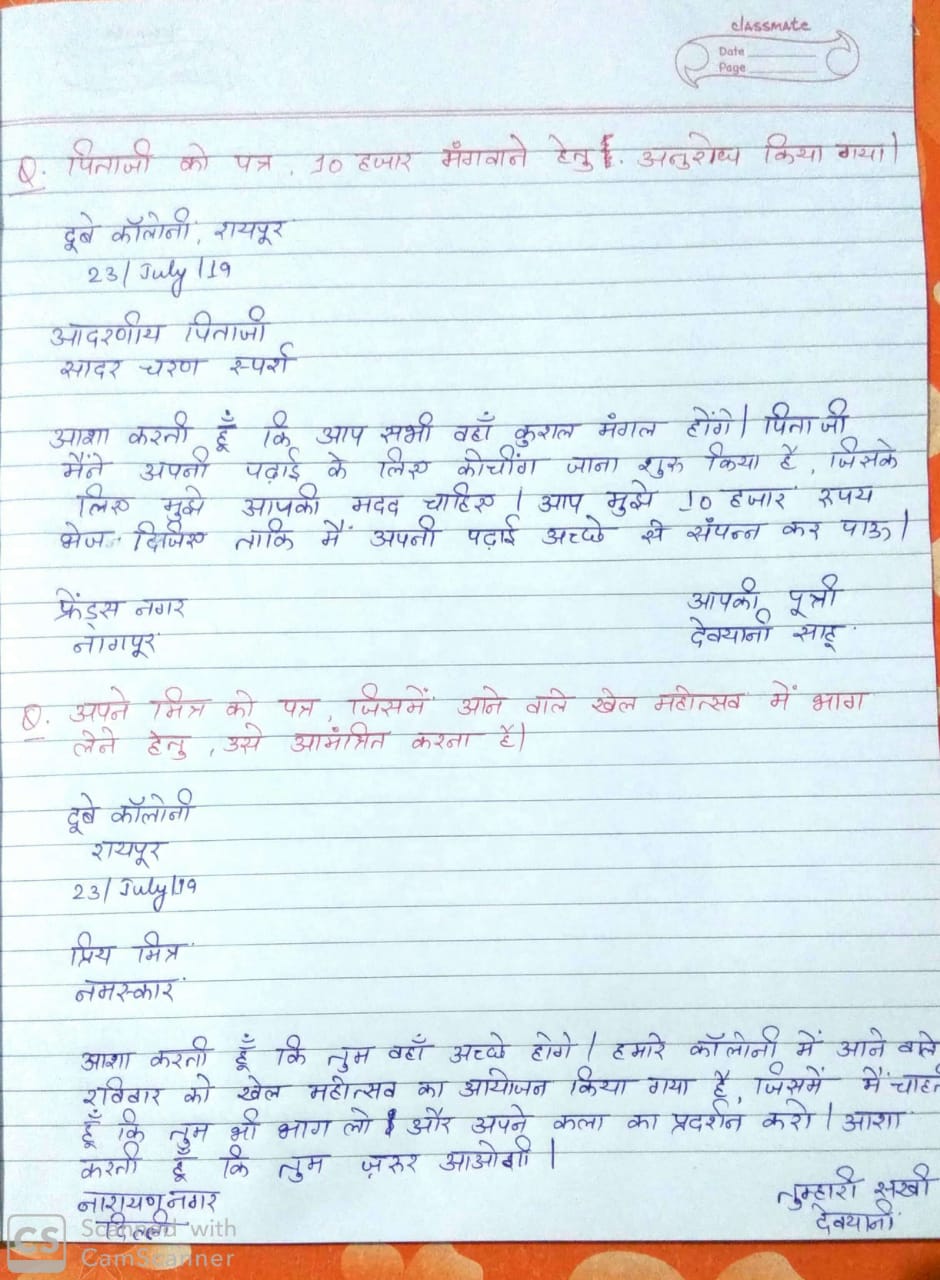 classmate
Date
Page
Q. पिताजी को पत्र, 10 हजार मँगवाने हेतु. अनुरोध किया गया।
दूबे कॉलोनी, रायपूर
23/July/19
आदरणीय पिताजी
सादर चरण स्पर्श
आशा करती हूँ कि आप सभी वहाँ कुशल मंगल होंगे। पिताजी
मैंने अपनी पढ़ाई के लिए कोचींग जाना शुरु किया है, जिसके
लिए मुझे आपकी मदद चाहिए। आप मुझे 10 हजार रूपय
भेज दिजिए ताकि मैं अपनी पढ़ाई अच्छे से संपन्न कर पाऊ।
फ्रेंड्स नगर
नागपूर
आपकी पूत्री
देवयानी साहू
Q. अपने मित्र को पत्र, जिसमें आने वाले खेल महोत्सव में भाग
लेने हेतु, उसे आमंत्रित करना है।
दूबे कॉलोनी
रायपूर
23/July/19
प्रिय मित्र
नमस्कार
आशा करती हूँ कि तुम वहाँ अच्छे होगे। हमारे कॉलोनी में आने वाले
रविवार को खेल महोत्सव का आयोजन किया गया है, जिसमें मैं चाहती
हूँ कि तुम भी भाग लो और अपने कला का प्रदर्शन करो। आशा
करती हूँ कि तुम ज़रुर आओगी।
नारायण नगर
दिल्ली
तुम्हारी सखी
देवयानी
CS Scanned with
CamScanner